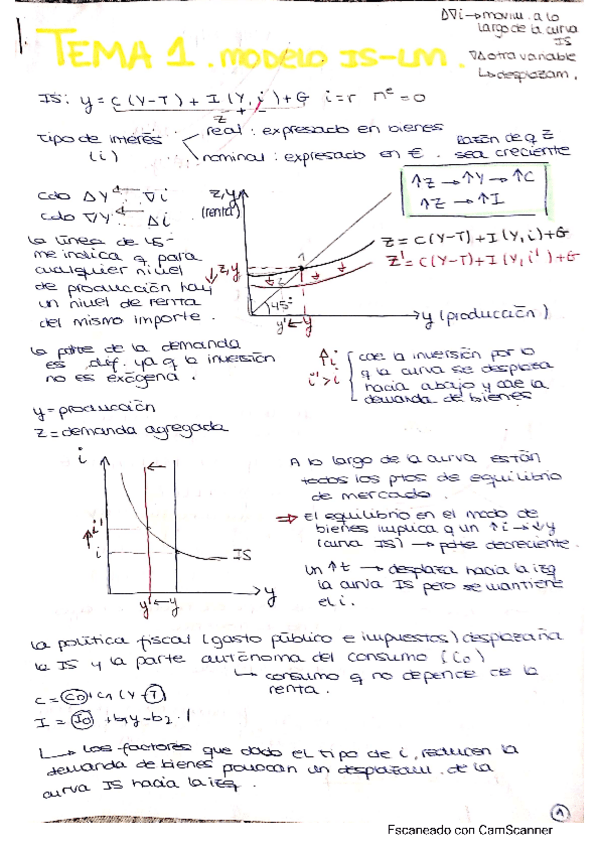 1.
ΔVi→movim. a lo
largo de la curva
IS
TEMA 1. MODELO IS-LM.
VΔ otra variable
↳ desplazam.
IS: y = C(Y-T) + I(Y,i) + G i=r π^e=0
z
tipo de interés (i)
real: expresado en bienes
nominal: expresado en €.
razón de q z
sea creciente
cdo ΔY ← ∇i
cdo ∇Y ← Δi
la línea de 45º
me indica q para
cualquier nivel
de producción hay
un nivel de renta
del mismo importe.
la pdte de la demanda
es dif. ya q la inversión
no es exógena.
y = producción
z = demanda agregada
z,y
(renta)
↑Z → ↑Y → ↑C
↑Z → ↑I
z = C(Y-T) + I(Y,i) + G
z' = C(Y-T) + I(Y,i') + G
↓z,y
1
45º
y' ← y
y (producción)
↑i
i' > i
cae la inversión por lo
q la curva se desplaza
hacia abajo y cae la
demanda de bienes
i
↑i'
i
IS
y' ← y
y
A lo largo de la curva están
todos los ptos de equilibrio
de mercado.
⇒ El equilibrio en el mdo de
bienes implica q un ↑i → ↓y
(curva IS) → pdte decreciente.
Un ↑t → desplaza hacia la izq
la curva IS pero se mantiene
el i.
la política fiscal (gasto público e impuestos) desplazaría
la IS y la parte autónoma del consumo (C0)
↳ consumo q no depende de la
renta.
C = C0 + C1 (Y-T)
I = I0 + b1y - b2 · i
↳ Los factores que dado el tipo de i, reducen la
demanda de bienes provocan un desplazam. de la
curva IS hacia la izq.
1
Escaneado con CamScanner